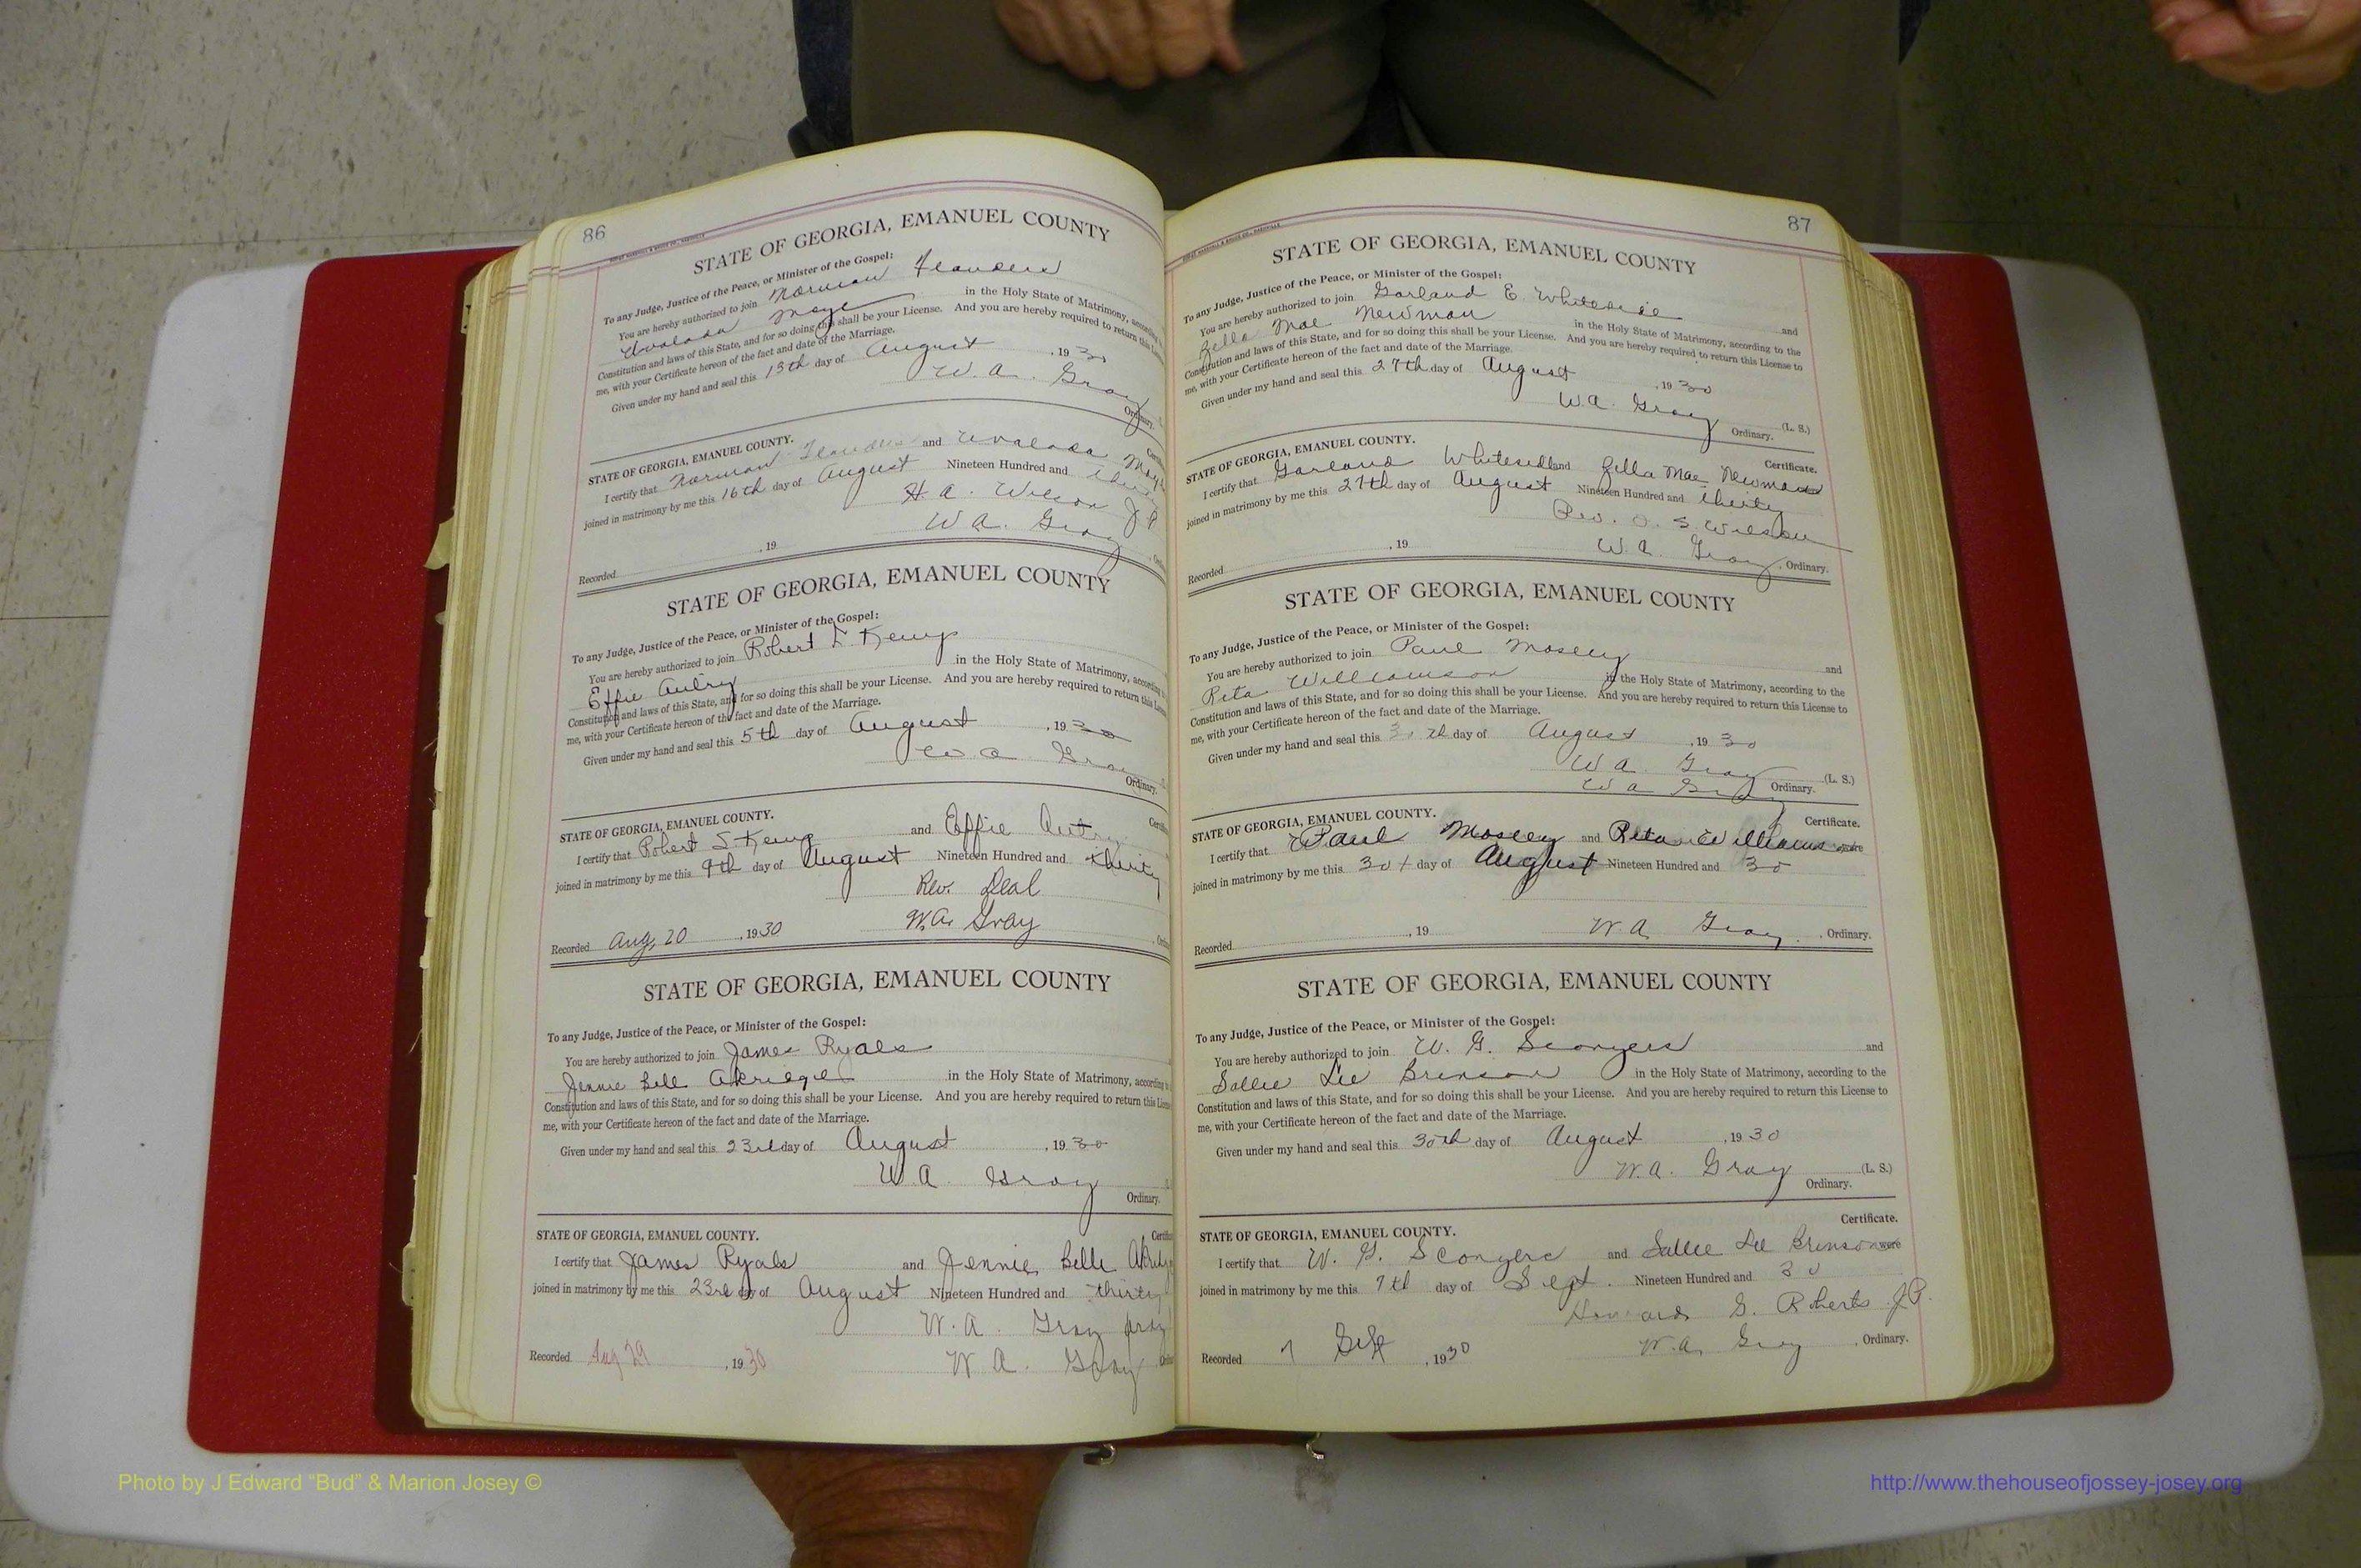 86
STATE OF GEORGIA, EMANUEL COUNTY
To any Judge, Justice of the Peace, or Minister of the Gospel:
You are hereby authorized to join Norman Flanders
Uvalada Maye in the Holy State of Matrimony, according
Constitution and laws of this State, and for so doing this shall be your License. And you are hereby required to return this
me, with your Certificate hereon of the fact and date of the Marriage.
Given under my hand and seal this 13th day of August, 1930
W. A. Gray
Ordinary.
STATE OF GEORGIA, EMANUEL COUNTY.
I certify that Norman Flanders and Uvalada
joined in matrimony by me this 16th day of August Nineteen Hundred and
H. A. Wilson J P
W A. Gray
Recorded , 19
STATE OF GEORGIA, EMANUEL COUNTY
To any Judge, Justice of the Peace, or Minister of the Gospel:
You are hereby authorized to join Robert L. Kemp
Effie Autry in the Holy State of Matrimony, according
Constitution and laws of this State, and for so doing this shall be your License. And you are hereby required to return this
me, with your Certificate hereon of the fact and date of the Marriage.
Given under my hand and seal this 5th day of August, 1930
W a Gray
Ordinary.
STATE OF GEORGIA, EMANUEL COUNTY.
I certify that Robert Kemp and Effie Autry
joined in matrimony by me this 9th day of August Nineteen Hundred and thirty
Rev. Deal
W.A. Gray
Recorded Aug, 20, 1930
STATE OF GEORGIA, EMANUEL COUNTY
To any Judge, Justice of the Peace, or Minister of the Gospel:
You are hereby authorized to join James Ryals
Jennie Bell Akridge in the Holy State of Matrimony, according
Constitution and laws of this State, and for so doing this shall be your License. And you are hereby required to return this
me, with your Certificate hereon of the fact and date of the Marriage.
Given under my hand and seal this 23rd day of August, 1930
W A. Gray
Ordinary.
STATE OF GEORGIA, EMANUEL COUNTY.
I certify that James Ryals and Jennie Belle
joined in matrimony by me this 23rd day of August Nineteen Hundred and thirty
W. A. Gray
W A. Gray
Recorded Aug 29, 1930
87
STATE OF GEORGIA, EMANUEL COUNTY
To any Judge, Justice of the Peace, or Minister of the Gospel:
You are hereby authorized to join Garland E. Whiteside and
Zella Mae Newman in the Holy State of Matrimony, according to the
Constitution and laws of this State, and for so doing this shall be your License. And you are hereby required to return this License to
me, with your Certificate hereon of the fact and date of the Marriage.
Given under my hand and seal this 27th day of August, 1930
W.A. Gray (L. S.)
Ordinary.
STATE OF GEORGIA, EMANUEL COUNTY. Certificate.
I certify that Garland Whiteside and Zella Mae Newman
joined in matrimony by me this 27th day of August Nineteen Hundred and thirty
Rev. O. S. Wilson
Recorded , 19 W. A. Gray, Ordinary.
STATE OF GEORGIA, EMANUEL COUNTY
To any Judge, Justice of the Peace, or Minister of the Gospel:
You are hereby authorized to join Paul Mosley and
Reta Williamson in the Holy State of Matrimony, according to the
Constitution and laws of this State, and for so doing this shall be your License. And you are hereby required to return this License to
me, with your Certificate hereon of the fact and date of the Marriage.
Given under my hand and seal this day of August, 1930
W A. Gray (L. S.)
W a Gray Ordinary.
STATE OF GEORGIA, EMANUEL COUNTY. Certificate.
I certify that Paul Mosley and Reta Williams were
joined in matrimony by me this 30 day of August Nineteen Hundred and 30
Recorded , 19 W. A. Gray, Ordinary.
STATE OF GEORGIA, EMANUEL COUNTY
To any Judge, Justice of the Peace, or Minister of the Gospel:
You are hereby authorized to join W. G. Scongers and
Sallie Lee Brinson in the Holy State of Matrimony, according to the
Constitution and laws of this State, and for so doing this shall be your License. And you are hereby required to return this License to
me, with your Certificate hereon of the fact and date of the Marriage.
Given under my hand and seal this 30th day of August, 1930
W.A. Gray (L. S.)
Ordinary.
STATE OF GEORGIA, EMANUEL COUNTY. Certificate.
I certify that W. G. and Sallie Lee Brinson were
joined in matrimony by me this 7th day of Sept. Nineteen Hundred and 30
Howard G. Roberts J.P.
Recorded 7 Sept, 1930 W.A. Gray, Ordinary.
Photo by J Edward “Bud” & Marion Josey ©
http://www.thehouseofjossey-josey.org